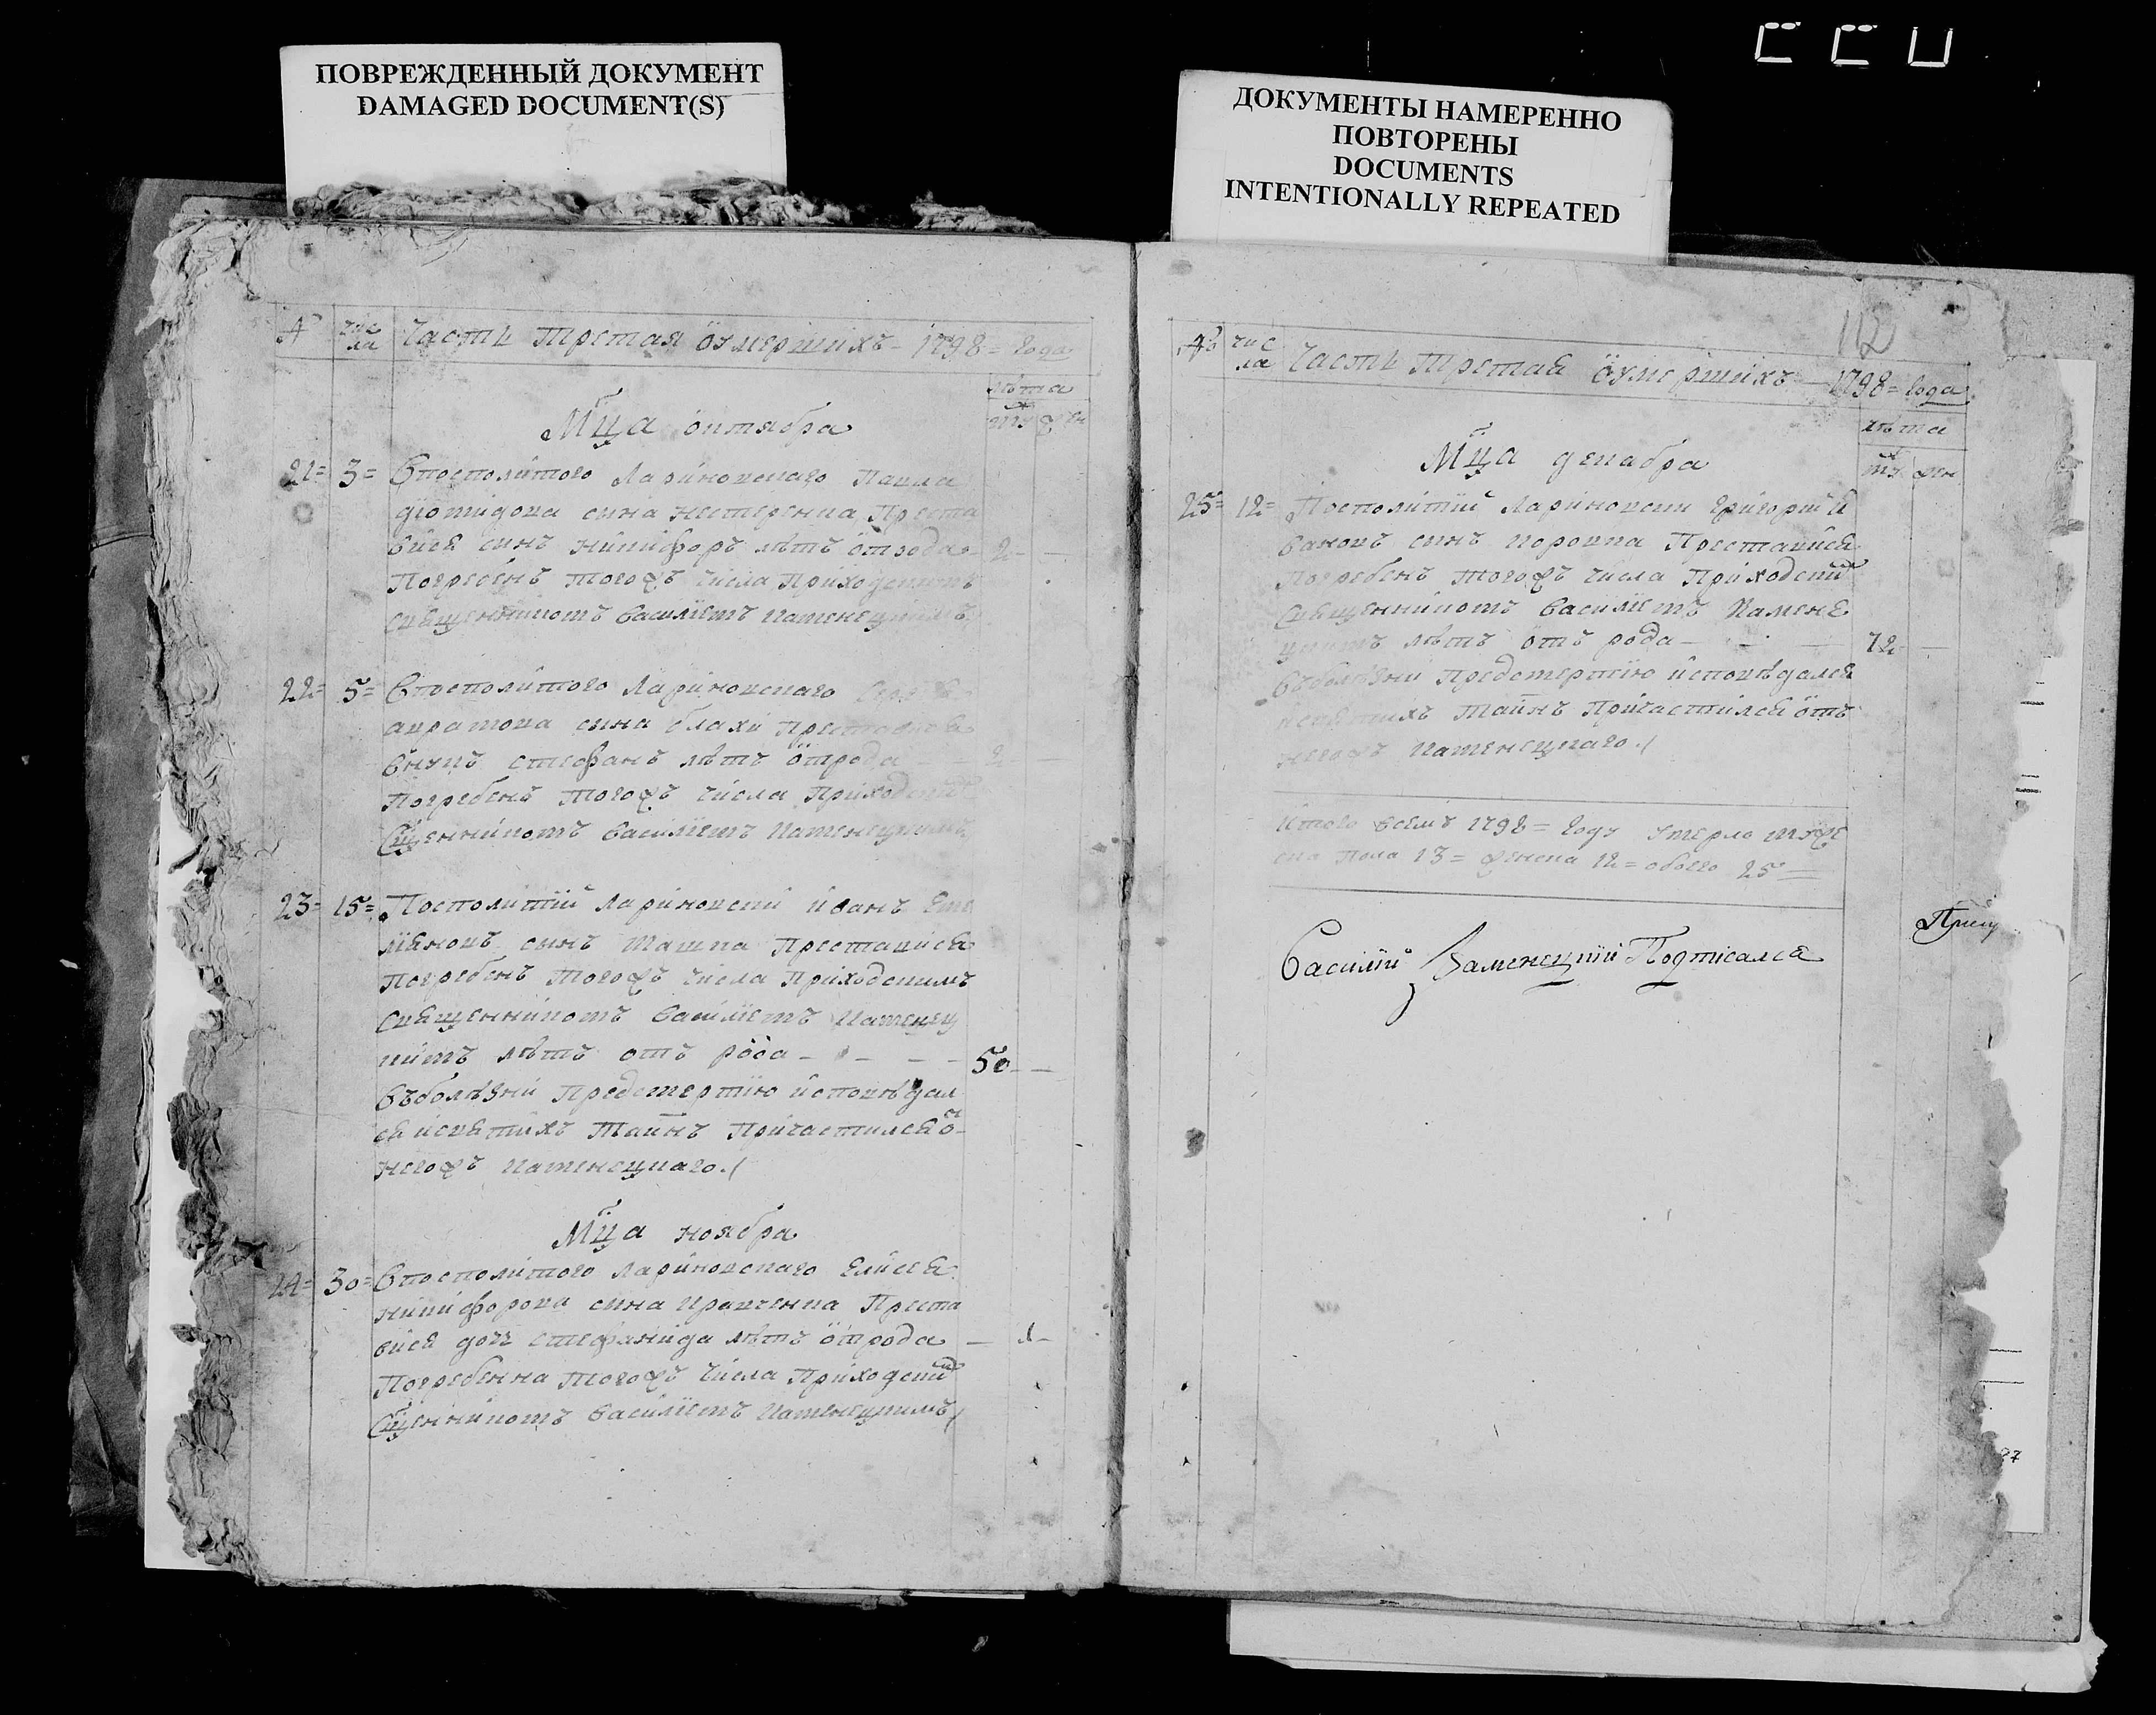 ПОВРЕЖДЕННЫЙ ДОКУМЕНТ
DAMAGED DOCUMENT(S)
ДОКУМЕНТЫ НАМЕРЕННО
ПОВТОРЕНЫ
DOCUMENTS
INTENTIONALLY REPEATED
№ чис
ла
Часть третая о умершихъ - 1798 = года
лѣта
муж жен
Мца октября
21= 3= В посполитого Лариновского Павла
Диомидова сина Нестеренка Преста
вися синъ Никифоръ лѣтъ от рода 2 —
Погребенъ тогожъ числа Приходскимъ
Священникомъ Василиемъ Каменецкимъ
22= 5= В посполитого Лариновского
сина Блахи Преставися
внукъ Стефанъ лѣтъ от рода 2 —
Погребенъ тогожъ числа Приходским
Сщенникомъ Василиемъ Каменецкимъ
23= 15= Посполитий Лариновский Иванъ Еме
ляновъ синъ Машка Преставися
Погребенъ тогожъ числа Приходскимъ
Священникомъ Василиемъ Каменец
кимъ лѣтъ отъ рода — — — 50 —
въ болѣзни Предсмертию исповѣдал
ся и святихъ Таинъ Причастился о
негожъ Каменецкаго./
Мца ноября
24= 30= В посполитого Лариновского Елисея
Никифорова сина Кравченка Преста
вися дочь Стефанида лѣтъ от рода — 1 -
Погребенна тогожъ числа Приходским
Сщенникомъ Василиемъ Каменецкимъ/
112
№ чис
ла
Часть третая о умершихъ — 1798 = года
лѣта
муж жен
Мца декабра
25= 12= Посполитий Лариновски Григорий И
вановъ синъ Коровка Преставися
Погребенъ тогожъ числа Приходским
Священникомъ Василиемъ Камене
цкимъ лѣтъ отъ рода — — — 72 —
въ болѣзни Предсмертию исповѣдался
и святихъ Таинъ Причастился отъ
негожъ Каменецкаго./
Итого всемъ 1798 = году умерло муже
ска пола 13 = женска 12 = обоего 25 =
Василий Каменецкий Подписался